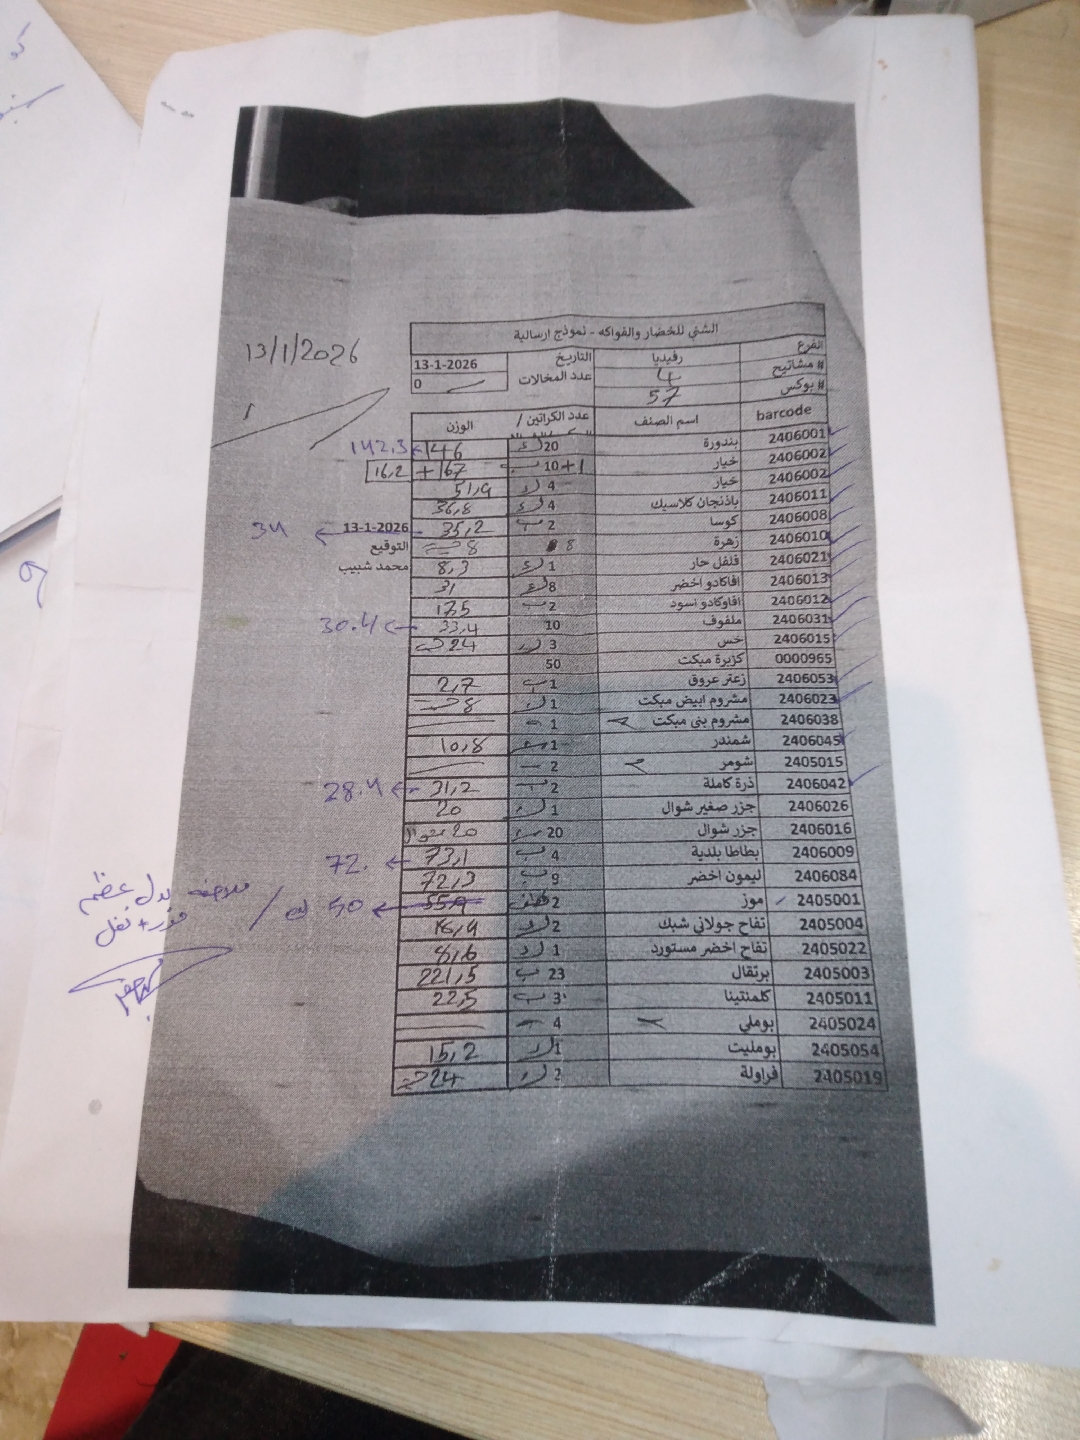 13/1/2026
الشني للخضار والفواكه - نموذج ارسالية
الفرع رفيديا التاريخ 13-1-2026
# مشاتيح 4 عدد المخالات 0
# بوكس 57
barcode اسم الصنف عدد الكراتين / الوزن
2406001 بندورة 20 146 142.3
2406002 خيار 10 +1 167 + 16,2
2406002 خيار 4 51,9
2406011 باذنجان كلاسيك 4 36,8
2406008 كوسا 2 ب 35,2 13-1-2026 34
2406010 زهرة 8 8 التوقيع
2406021 فلفل حار 1 8,3 محمد شبيب
2406013 افاكادو اخضر 8 31
2406012 افاوكادو اسود 2 ب 17,5
2406031 ملفوف 10 33,4 30.4
2406015 خس 3 24
0000965 كزبرة مبكت 50
2406053 زعتر عروق 1 ب 2,7
2406023 مشروم ابيض مبكت 1 8
2406038 مشروم بني مبكت 1
2406045 شمندر 1 10,8
2405015 شومر 2
2406042 ذرة كاملة 2 ب 31,2 28.4
2406026 جزر صغير شوال 1 20
2406016 جزر شوال 20 20 شوال
2406009 بطاطا بلدية 4 ب 73,1 72.
2406084 ليمون اخضر 9 ب 72,3
2405001 موز 2 55,9 50
2405004 تفاح جولاني شبك 2 18,9
2405022 تفاح اخضر مستورد 1 8,6
2405003 برتقال 23 ب 221,5
2405011 كلمنتينا 3 ب 22,5
2405024 بوملي 4
2405054 بومليت 1 15,2
2405019 فراولة 2 24